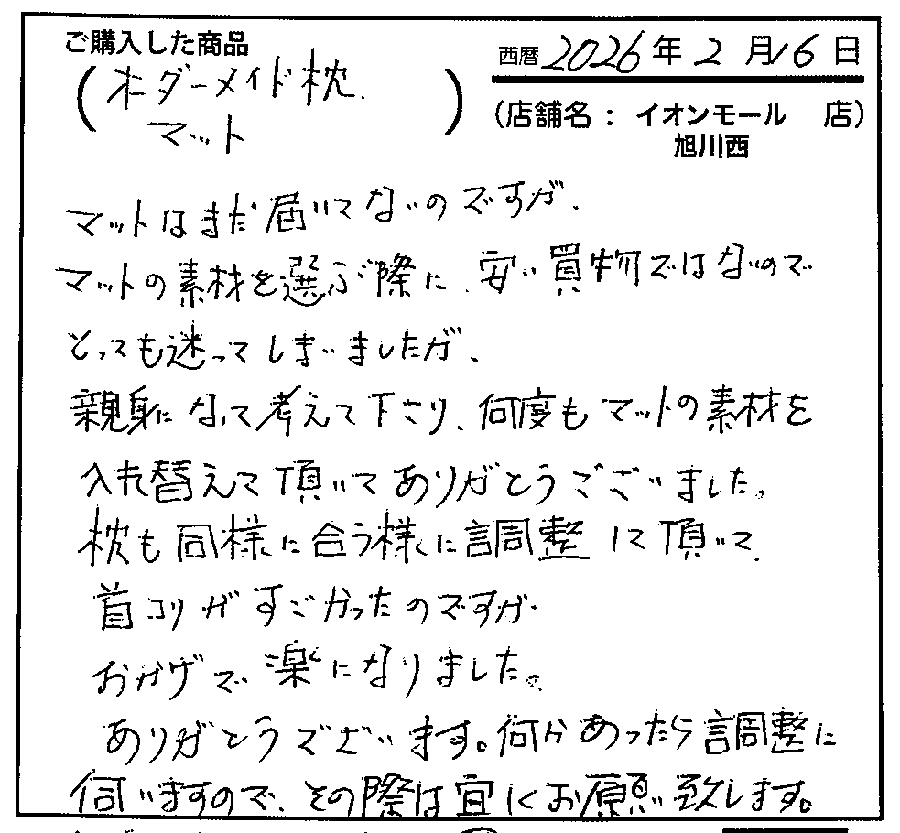 ご購入した商品
西暦2026年2月16日
(オーダーメイド枕、
マット)
(店舗名: イオンモール 旭川西 店)
マットはまだ届いてないのですが、
マットの素材を選ぶ際に、安い買物ではないので
とっても迷ってしまいましたが、
親身になって考えて下さり、何度もマットの素材を
入れ替えて頂いてありがとうございました。
枕も同様に合う様に調整して頂いて、
首コリがすごかったのですが
おかげで楽になりました。
ありがとうございます。何かあったら調整に
伺いますので、その際は宜しくお願い致します。